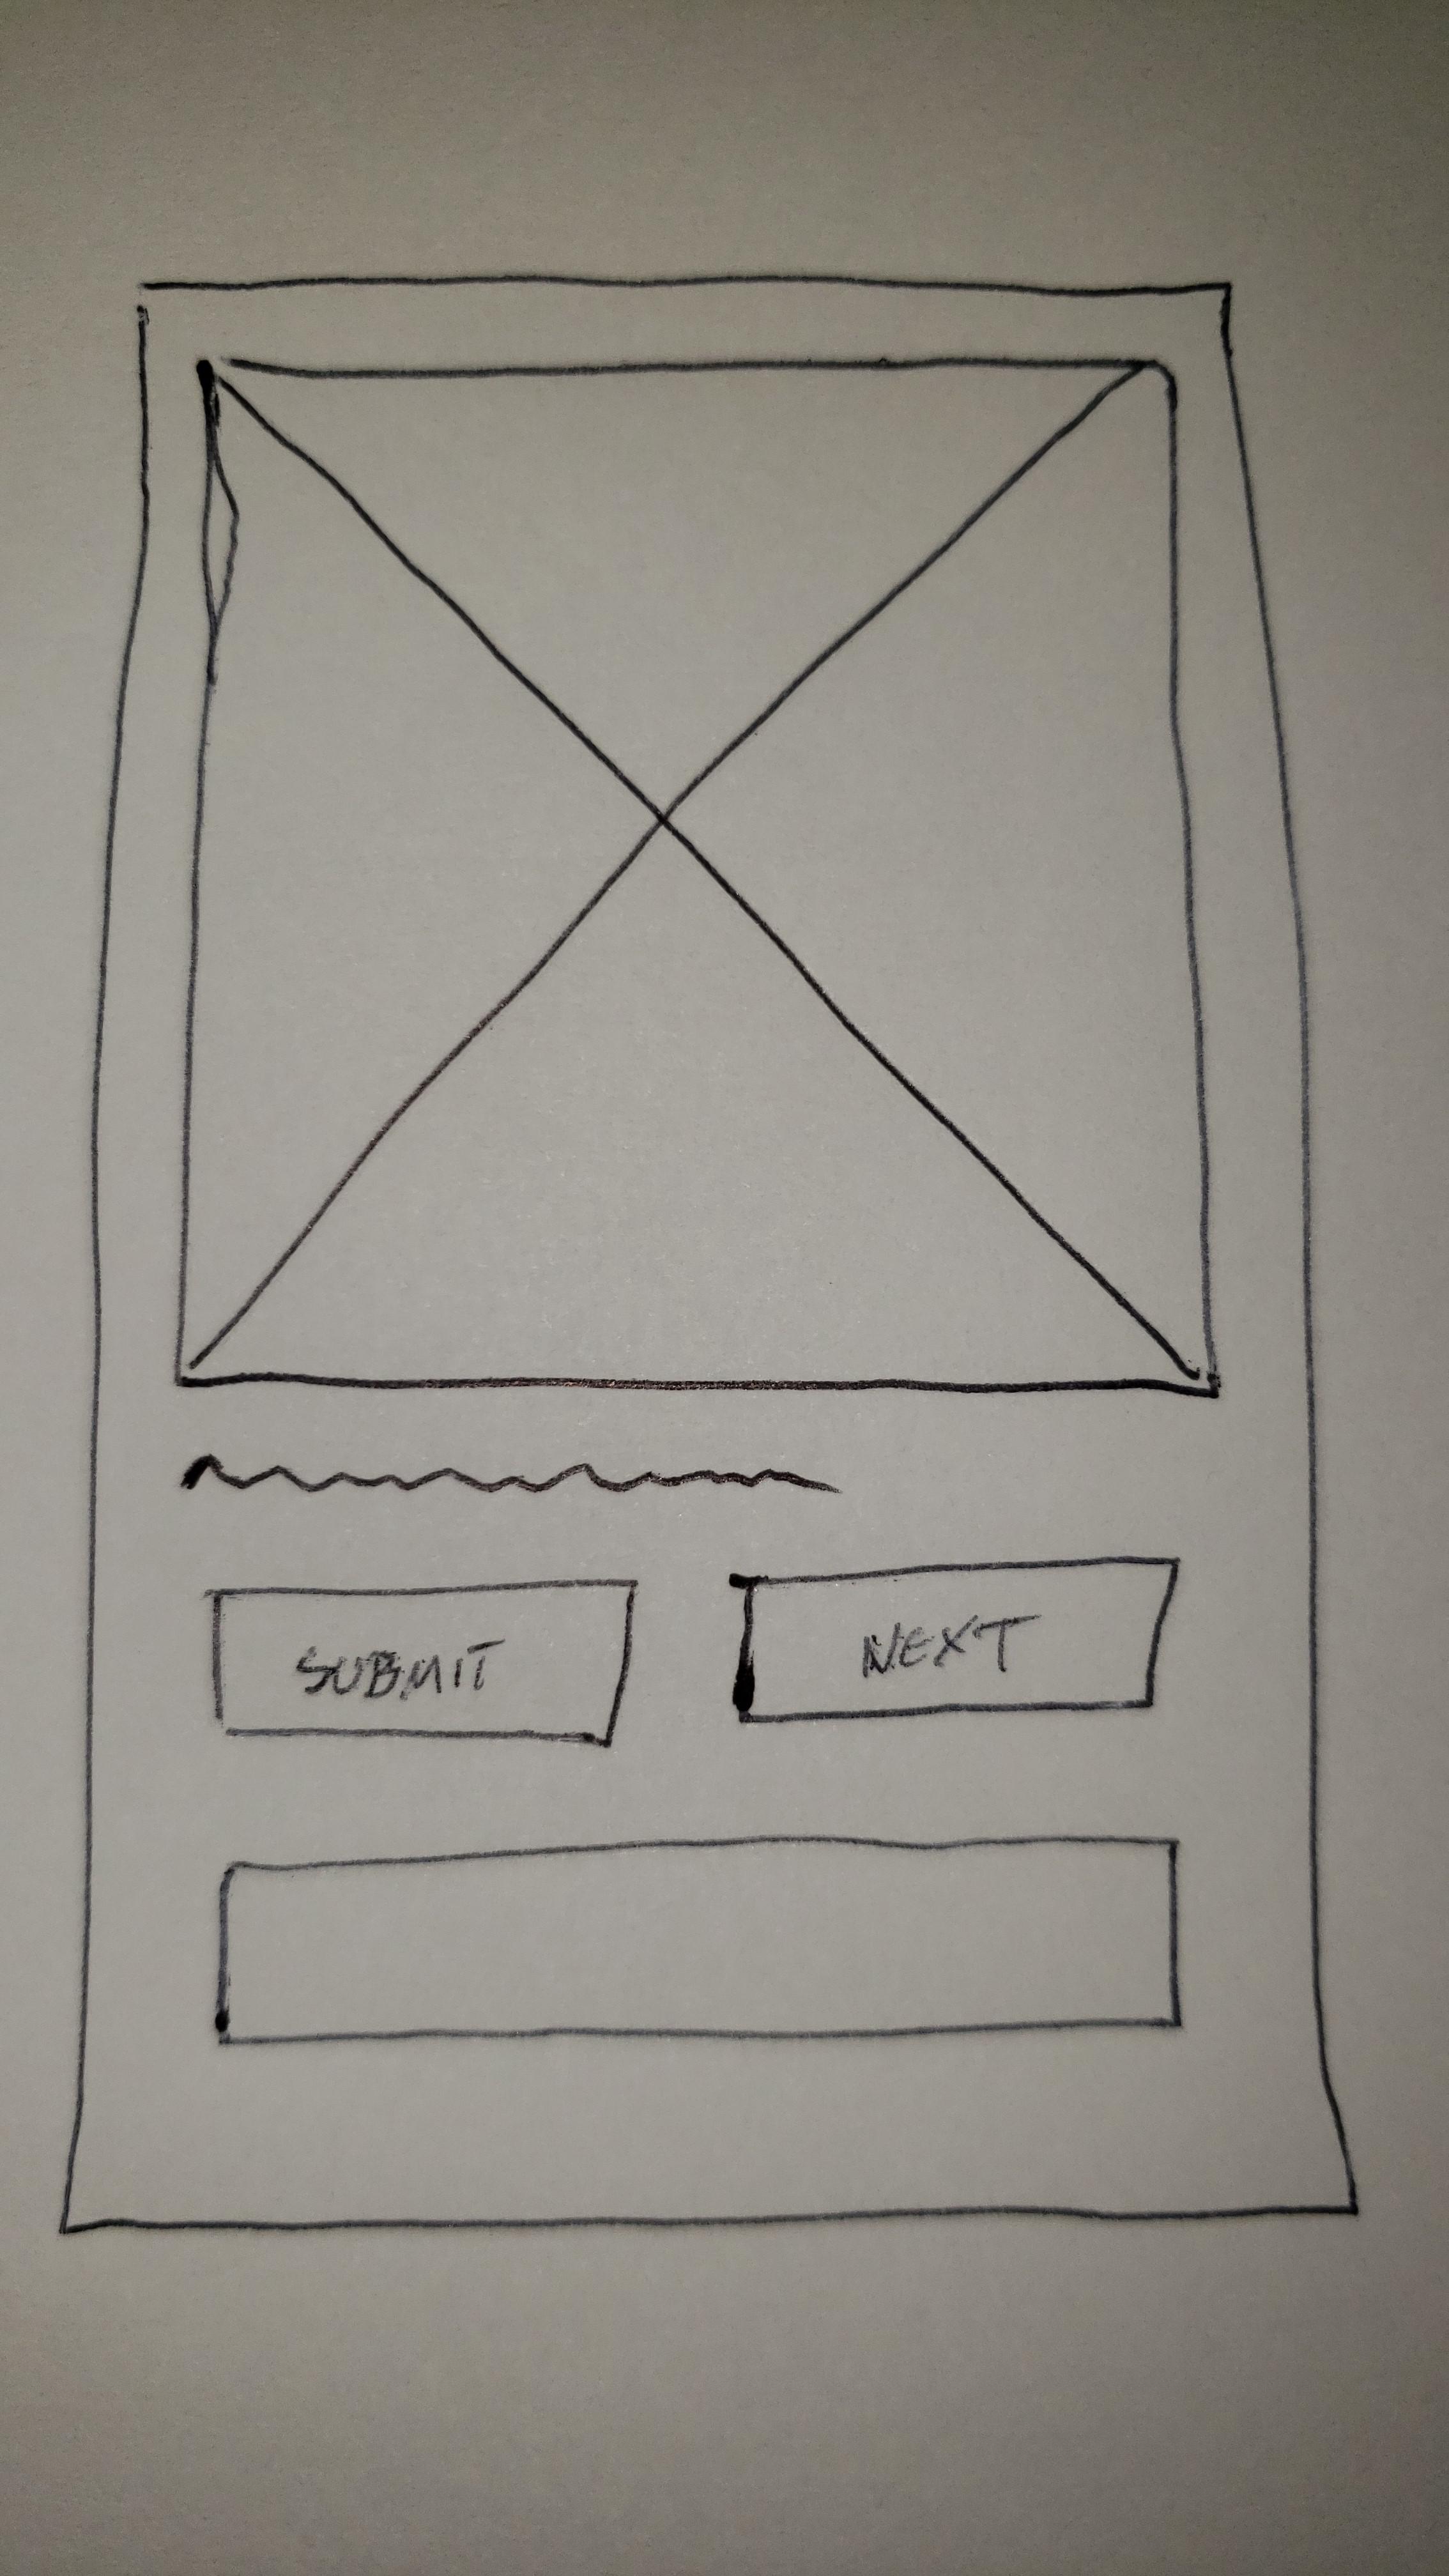 SUBMIT NEXT